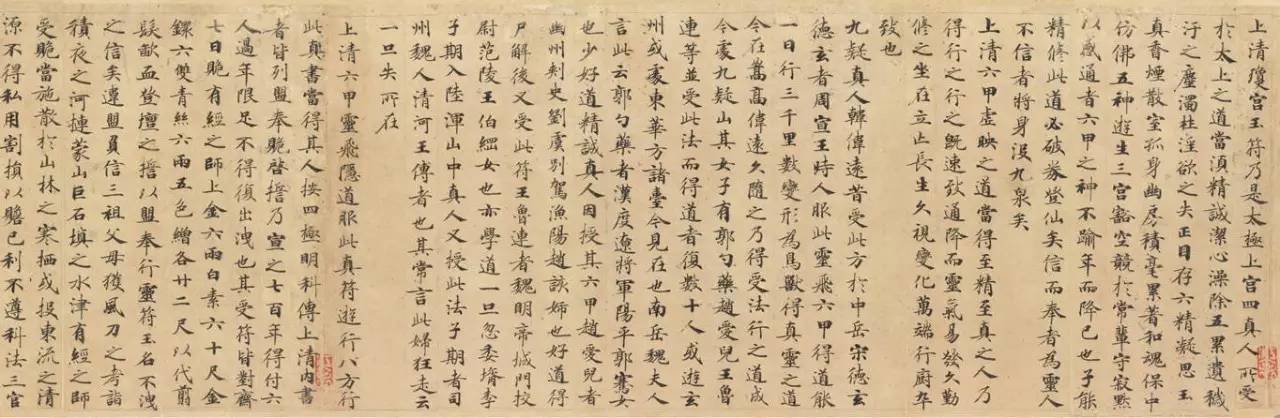 上清瓊宮玉符乃是太極上宮四真人所受
於太上之道當須精誠潔心澡除五累遺穢
汙之塵濁杜淫欲之失正目存六精凝思玉
真香煙散室孤身幽房積毫累著和魂保中
仿佛五神遊生三宮豁空競於常輩守寂默
以感通者六甲之神不踰年而降已也子能
精修此道必破券登仙矣信而奉者為靈人
不信者將身沒九泉矣
上清六甲虛映之道當得至精至真之人乃
得行之行之既速致通降而靈氣易發久勤
修之坐在立亡長生久視變化萬端行廚卒
致也
九疑真人韓偉遠昔受此方於中岳宋德玄
德玄者周宣王時人服此靈飛六甲得道能
一日行三千里數變形為鳥獸得真靈之道
今在嵩高偉遠久隨之乃得受法行之道成
今處九疑山其女子有郭勺藥趙愛兒王魯
連等並受此法而得道者復數十人或遊玄
州或處東華方諸臺今見在也南岳魏夫人
言此云郭勺藥者漢度遼將軍陽平郭騫女
也少好道精誠真人因授其六甲趙愛兒者
幽州刺史劉虞別駕漁陽趙該姊也好道得
尸解後又受此符王魯連者魏明帝城門校
尉范陵王伯綱女也亦學道一旦忽委婿李
子期入陸渾山中真人又授此法子期者司
州魏人清河王傅者也其常言此婦狂走云
一旦失所在
上清六甲靈飛隱道服此真符遊行八方行
此真書當得其人按四極明科傳上清內書
者皆列盟奉贶啟誓乃宣之七百年得付六
人過年限足不得復出洩也其受符皆對齋
七日贶有經之師上金六兩白素六十尺金
鐶六雙青絲六兩五色繒各廿二尺以代剪
髮歃血登壇之誓以盟奉行靈符玉名不洩
之信矣違盟負信三祖父母獲風刀之考詣
積夜之河摙蒙山巨石填之水津有經之師
受贶當施散於山林之寒栖或投東流之清
源不得私用割損以贍己利不遵科法三官